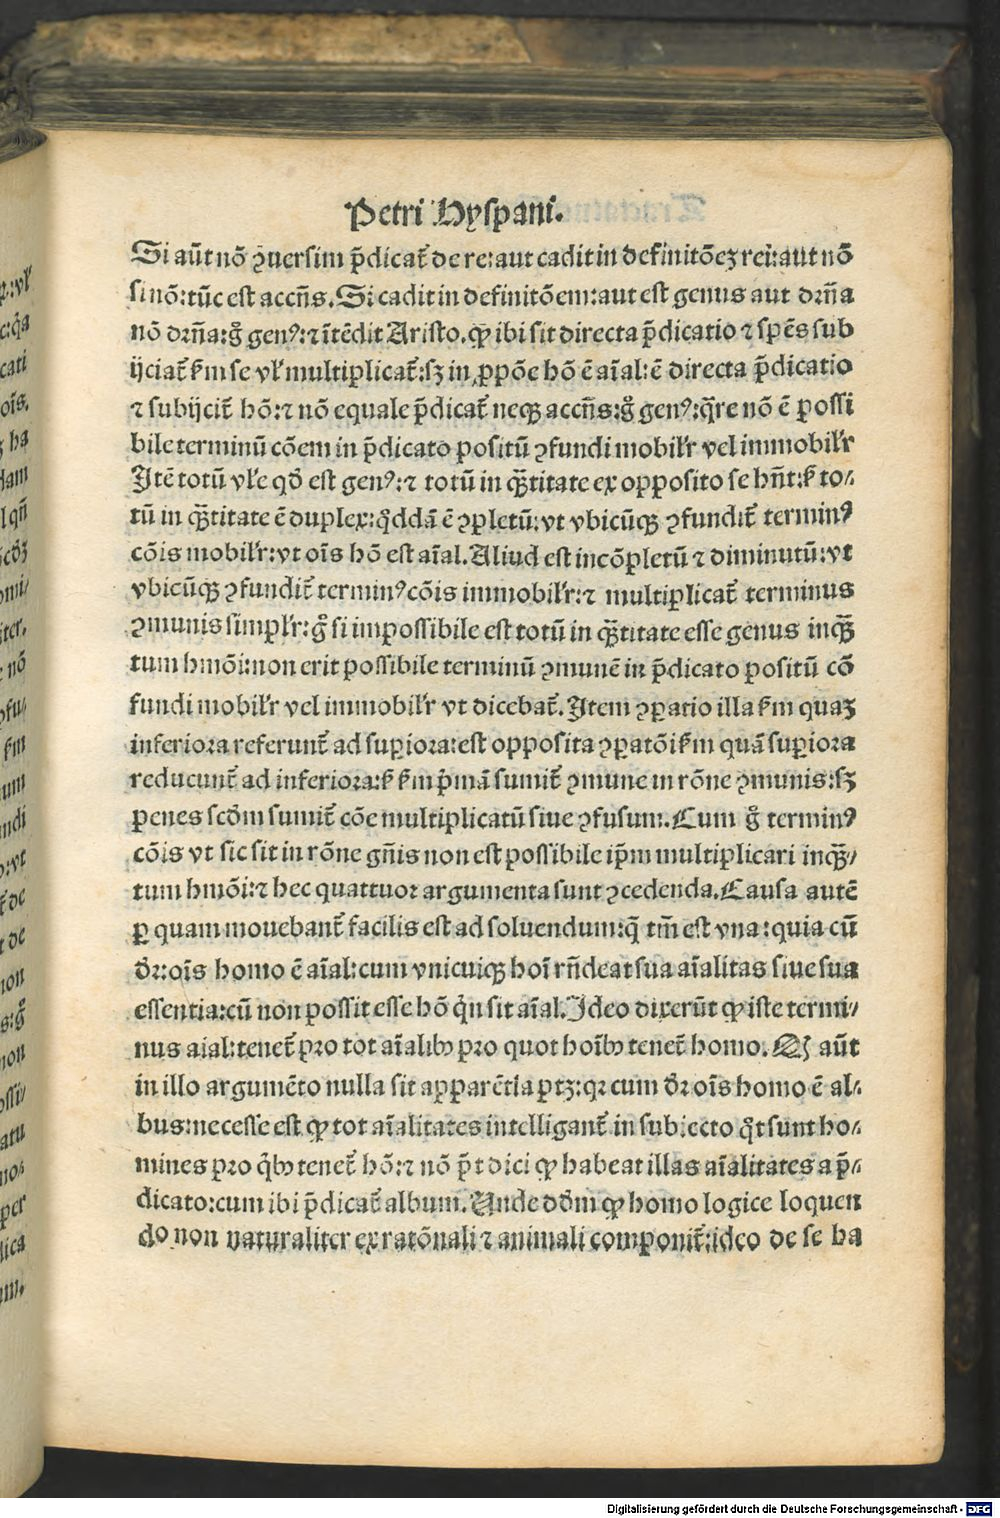 Petri Hyspani.
Si aūt nō ꝯuersim p̄dicat᷑ de re: aut cadit in definitōeꝫ rei: aut nō
si nō: tūc est accn̄s. Si cadit in definitōem: aut est genus aut dr̄na
nō dr̄na: gͦ genꝰ: ⁊ ītēdit Aristo. ꝙ ibi sit directa p̄dicatio ⁊ spēs sub
ijciat᷑ ẜm se vl̓ multiplicat᷑: sꝫ in ꝓpōe hō ē aīal: ē directa p̄dicatio
⁊ subijcit᷑ hō: ⁊ nō equale p̄dicat᷑ neqꝫ accn̄s: gͦ genꝰ: q̄re nō ē possi
bile terminū cōem in p̄dicato positū ꝯfundi mobil̓r vel immobil̓r
Itē totū vl̓e qd̓ est genꝰ: ⁊ totū in q̄ꝫtitate ex opposito se hn̄t: ẜ to⸗
tū in q̄ꝫtitate ē duplex: qͦddā ē ꝯpletū: vt vbicūqꝫ ꝯfundit᷑ terminꝰ
cōis mobil̓r: vt oīs hō est aīal. Aliud est incōpletū ⁊ diminutū: vt
vbicūqꝫ ꝯfundit᷑ terminꝰ cōis immobil̓r: ⁊ multiplicat᷑ terminus
ꝯmunis simpl̓r: gͦ si impossibile est totū in q̄ꝫtitate esse genus inq̄ꝫ
tum hmōi: non erit possibile terminū ꝯmunē in p̄dicato positū cō
fundi mobil̓r vel immobil̓r vt dicebat᷑. Item ꝯꝑatio illa ẜm quaꝫ
inferiora referunt᷑ ad superiora: est opposita ꝯꝑatōi ẜm quā suꝑiora
reducunt᷑ ad inferiora: ẜ ẜm pͥmā sumit᷑ ꝯmune in rōne ꝯmunis: sꝫ
penes scd̓m sumit᷑ cōe multiplicatū siue ꝯfusum. Cum gͦ terminꝰ
cōis vt sic sit in rōne gn̄is non est possibile ip̄m multiplicari inq̄ꝫ⸗
tum hmōi: ⁊ hec quattuor argumenta sunt ꝯcedenda. Causa autē
ꝑ quam mouebant᷑ facilis est ad soluendum: q̄ tm̄ est vna: quia cū
dr̄: oīs homo ē aīal: cum vnicuiqꝫ hoī rn̄deat sua aīalitas siue sua
essentia: cū non possit esse hō qͥn sit aīal. Ideo dixerūt ꝙ iste termi⸗
nus aīal: tenet᷑ pro tot aīalibꝰ pro quot hoībꝰ tenet᷑ homo. Qꝫ aūt
in illo argumēto nulla sit apparētia ptꝫ: qꝛ cum dr̄ oīs homo ē al⸗
bus: necesse est ꝙ tot aīalitates intelligant᷑ in subiecto qͦt sunt ho⸗
mines pro qͥbꝰ tenet᷑ hō: ⁊ nō p̄t dici ꝙ habeat illas aīalitates a p̄⸗
dicato: cum ibi p̄dicat᷑ album. Unde dd̓m ꝙ homo logice loquen
do non naturaliter ex ratōnali ⁊ animali componit᷑: ideo de se ha
Digitalisierung gefördert durch die Deutsche Forschungsgemeinschaft - DFG